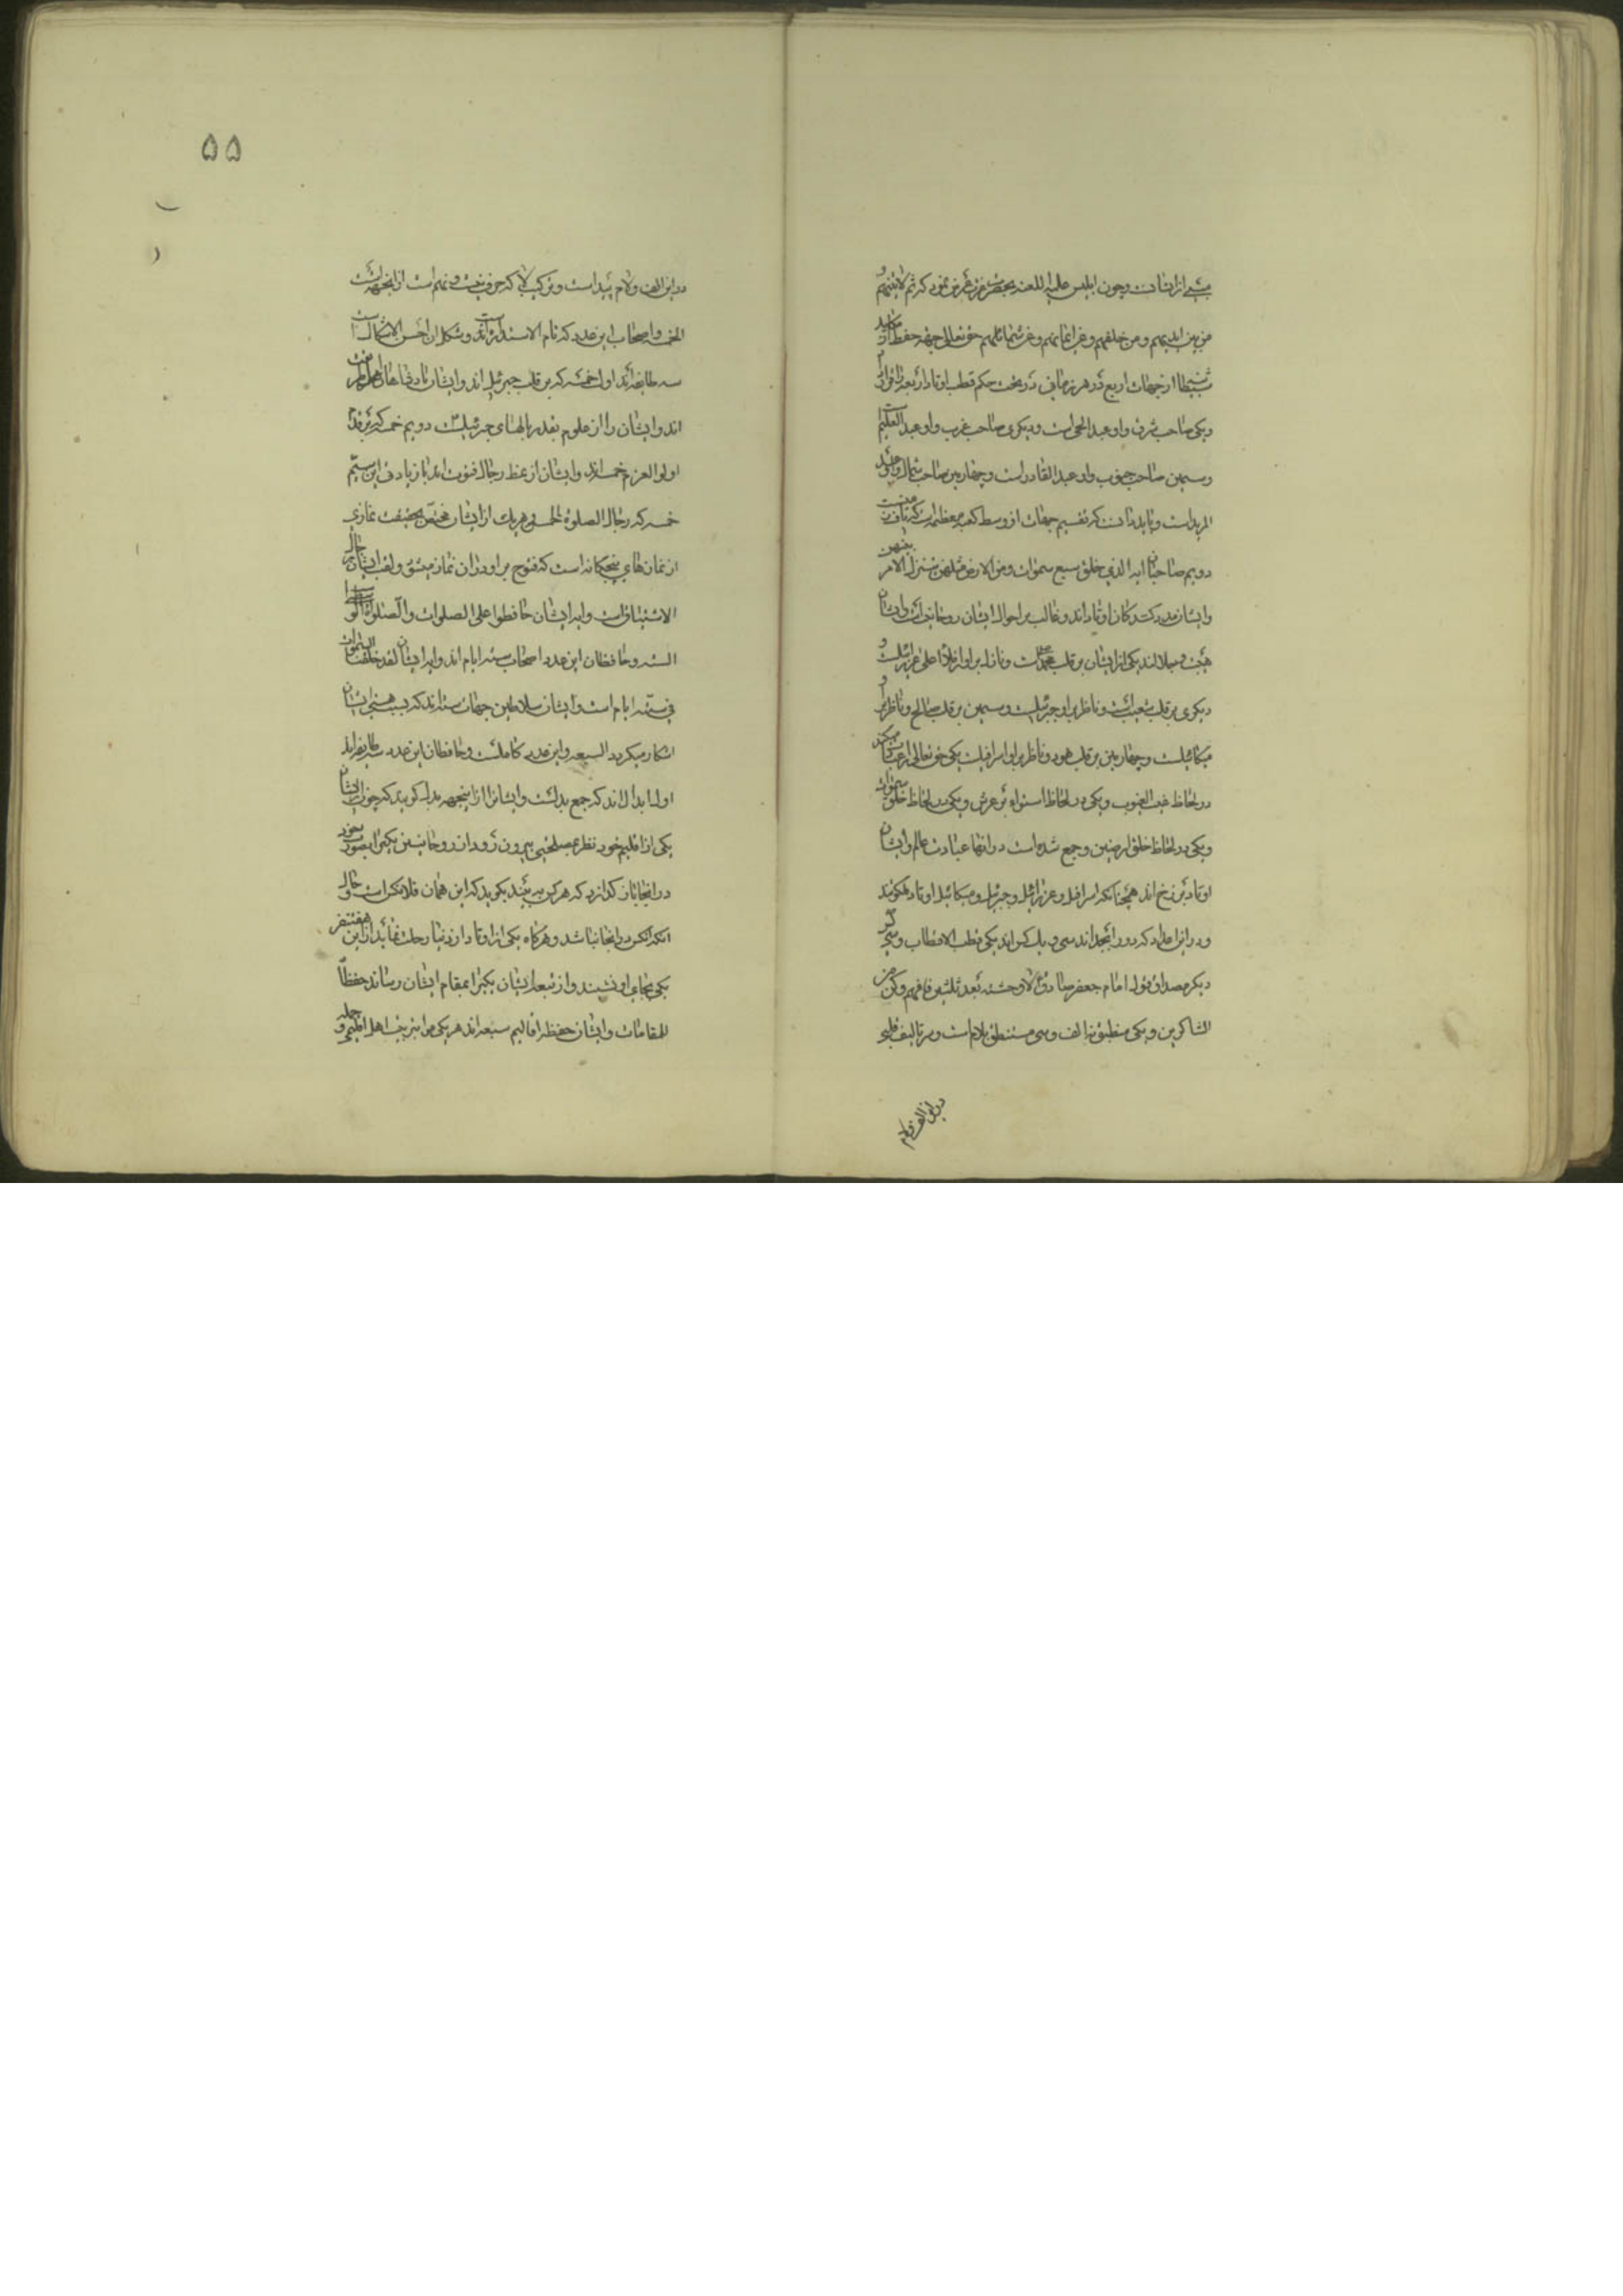 از انسان و چون ابلیس علیه اللعنه بحضرت عزت عرض نمود که ثم لآتینهم
من بین ایدیهم و من خلفهم و عن ایمانهم و عن شمائلهم حق تعالی جهة حفظ
از جهات اربع در هر زمانی در تحت حکم قطب اوتاد اربعه
و یکی صاحب شرق و او عبد الحی است و دیگری صاحب غرب و او عبد العلیم
و سیمین صاحب جنوب و او عبد القادر است و چهارمین صاحب شمال و او عبد
المرید است و باید دانست که تقسیم جهات از وسط کعبه معظمه است که
دویم صاحبان ایه الذی خلق سبع سموات و من الارض مثلهن یتنزل الامر بینهن
و ایشان اوتاد اند و غالب بر احوال ایشان روحانیت است و ایشان
یکی از ایشان بر قلب محمد است و نازل بر او از ملاء اعلی عزرائیل است و
دیگری بر قلب شعیب است و ناظر بر او جبرئیل است و سیمین بر قلب صالح و ناظر بر او
میکائیل است و چهارمین بر قلب هود و ناظر بر او اسرافیل است یکی حق تعالی را عبادت میکند
در لحاظ غیب الغیوب و یکی در لحاظ استواء بر عرش و یکی در لحاظ خلق سموات
و یکی در لحاظ خلق ارضین و جمع شده است در انها عبادت عالم و ایشان
اوتاد برزخ اند همچنانکه اسرافیل و عزرائیل و جبرئیل و میکائیل اوتاد ملکوتند
و در این اعداد که در ابجداند سی و یک کس اند یکی قطب الاقطاب و سی
دیگر مصداق قول امام جعفر صادق الاوحشه بعد ثلثین فافهم و کن من
الشاکرین و یکی منطبق به الف و سی مستنطق بلام است و سر تالیف قلبی
در این الف و لام
۵۵
در این الف و لام پیداست و ترکیب لا که حرف بیست و نهم است از اینجهة است
الخمسه و اصحاب این عدد که تام الاستداره است و شکل ان احسن الاشکال است
سه طایفه اند اول خمسه که بر قلب جبرئیل اند و ایشان پادشاهان اهل طریقت
اند و ایشان را از علوم بقدر بالهای جبرئیل است دویم خمسه که بر قدم
اولو العزم خمسه اند و ایشان از رجال فتوت اند سیم
خمسه که رجال الصلوة الخمس هر یک از ایشان مختص بحقیقت نمازی
از نمازهای پنجگانه است که فتوح بر او در ان نماز میشود و لقب ایشان رجال
الاشتیاق است و ایه ایشان حافظوا علی الصلوات و الصلوة الوسطی
السته و حافظان این عدد اصحاب سته ایام اند و ایه ایشان لقد خلقنا السموات
فی سته ایام است و ایشان سلاطین جهات سته اند که بسبب هستی ایشان
اشکار میکردد السبعه و این عدد کاملست و حافظان این عدد سه طایفه اند
اول ابدال اند که جمع بدلست و ایشانرا از اینجهه بدل کویند که چون ایشان
یکی از اقلیم خود نظر بمصلحتی بیرون رود از روحانیین یکیرا بصورت خود
در انجا باز کذارد که هر کس ببیند بکوید که این همان فلانکس است و حال
انکه انکس در انجا نباشد و هرکاه یکی از اوتاد از دنیا رحلت نماید از این هفت نفر
یکی بجای او نشیند و از نجبا ایشان یکیرا بمقام ایشان رساند حفظاً
للمقامات و ایشان حفظه اقالیم سبعه اند هر یکی اهل اقلیم و